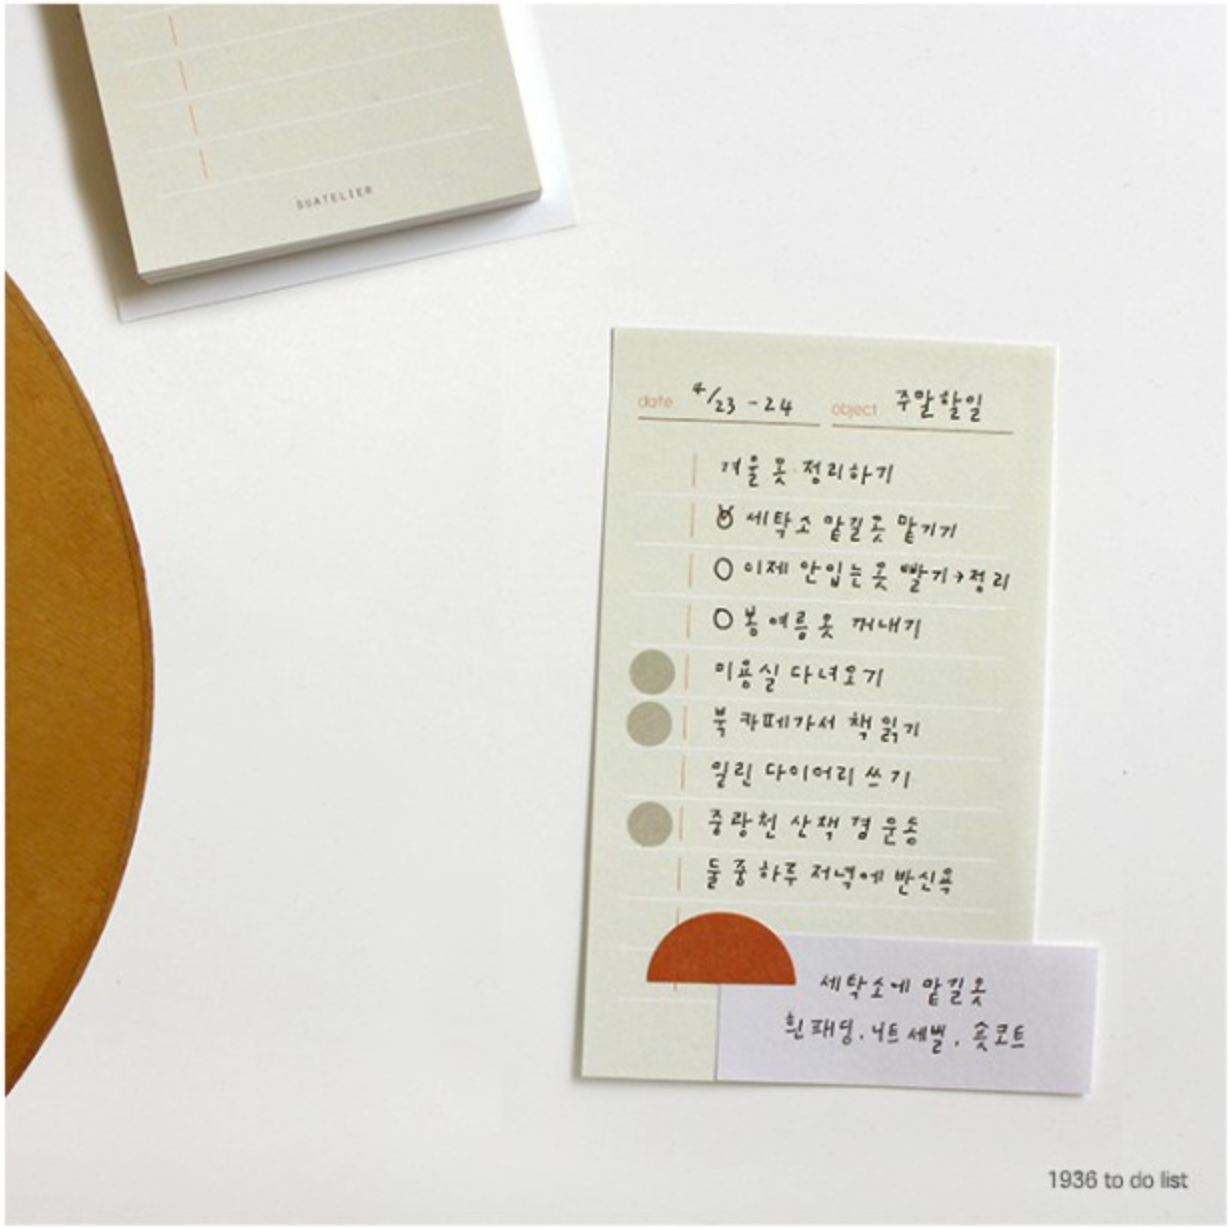 SUATELIER
date 4/23 - 24 object 주말할일
겨울 옷 정리하기
세탁소 맡길옷 맡기기
이제 안입는옷 빨기→정리
봄여름옷 꺼내기
미용실 다녀오기
북카페가서 책읽기
밀린 다이어리 쓰기
중랑천 산책 겸 운동
둘중 하루 저녁에 반신욕
세탁소에 맡길옷
흰패딩, 니트세벌, 숏코트
1936 to do list